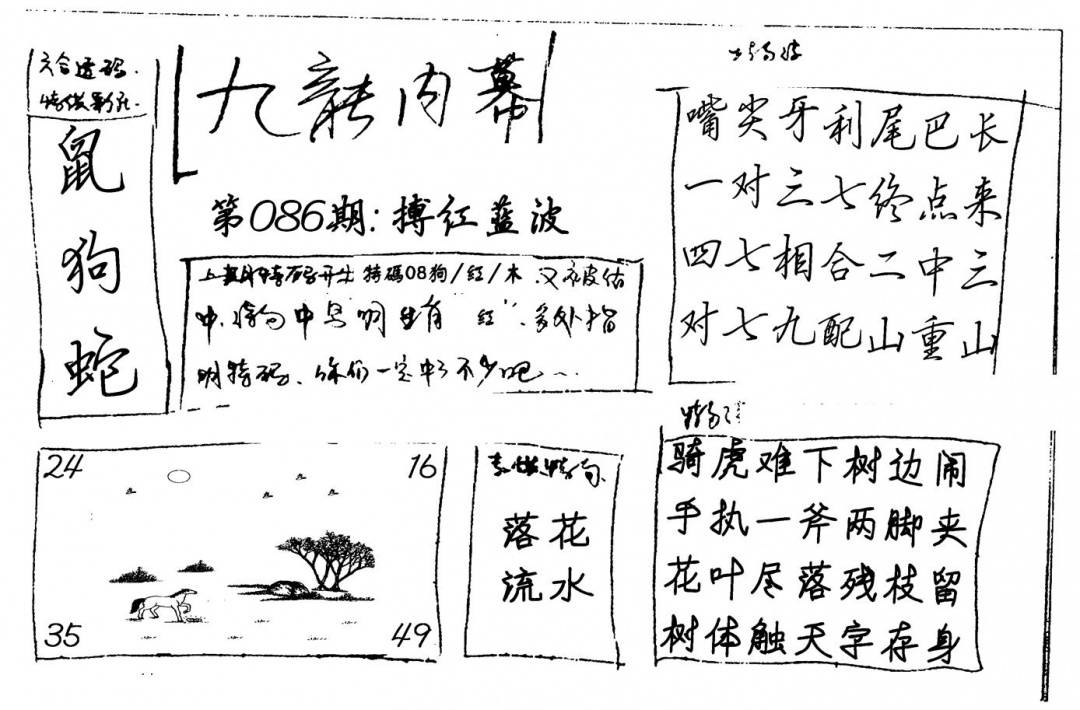 六合透码.
鼠
狗
蛇
九龍内幕
第086期:搏红蓝波
上期特码开出 特碼08狗/红/木 又被估
中.特句中早明
明特码、你们一定中了不少吧~
嘴尖牙利尾巴长
一对三七终点来
四七相合二中三
对七九配山重山
24
16
35
49
落花
流水
骑虎难下树边闹
手执一斧两脚夹
花叶尽落残枝留
树体触天字存身